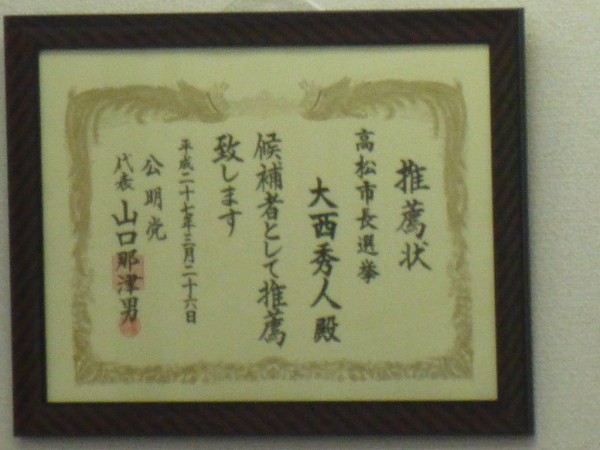 推薦状
高松市長選挙
大西秀人殿
候補者として推薦
致します
平成二十七年三月二十六日
公明党
代表 山口那津男